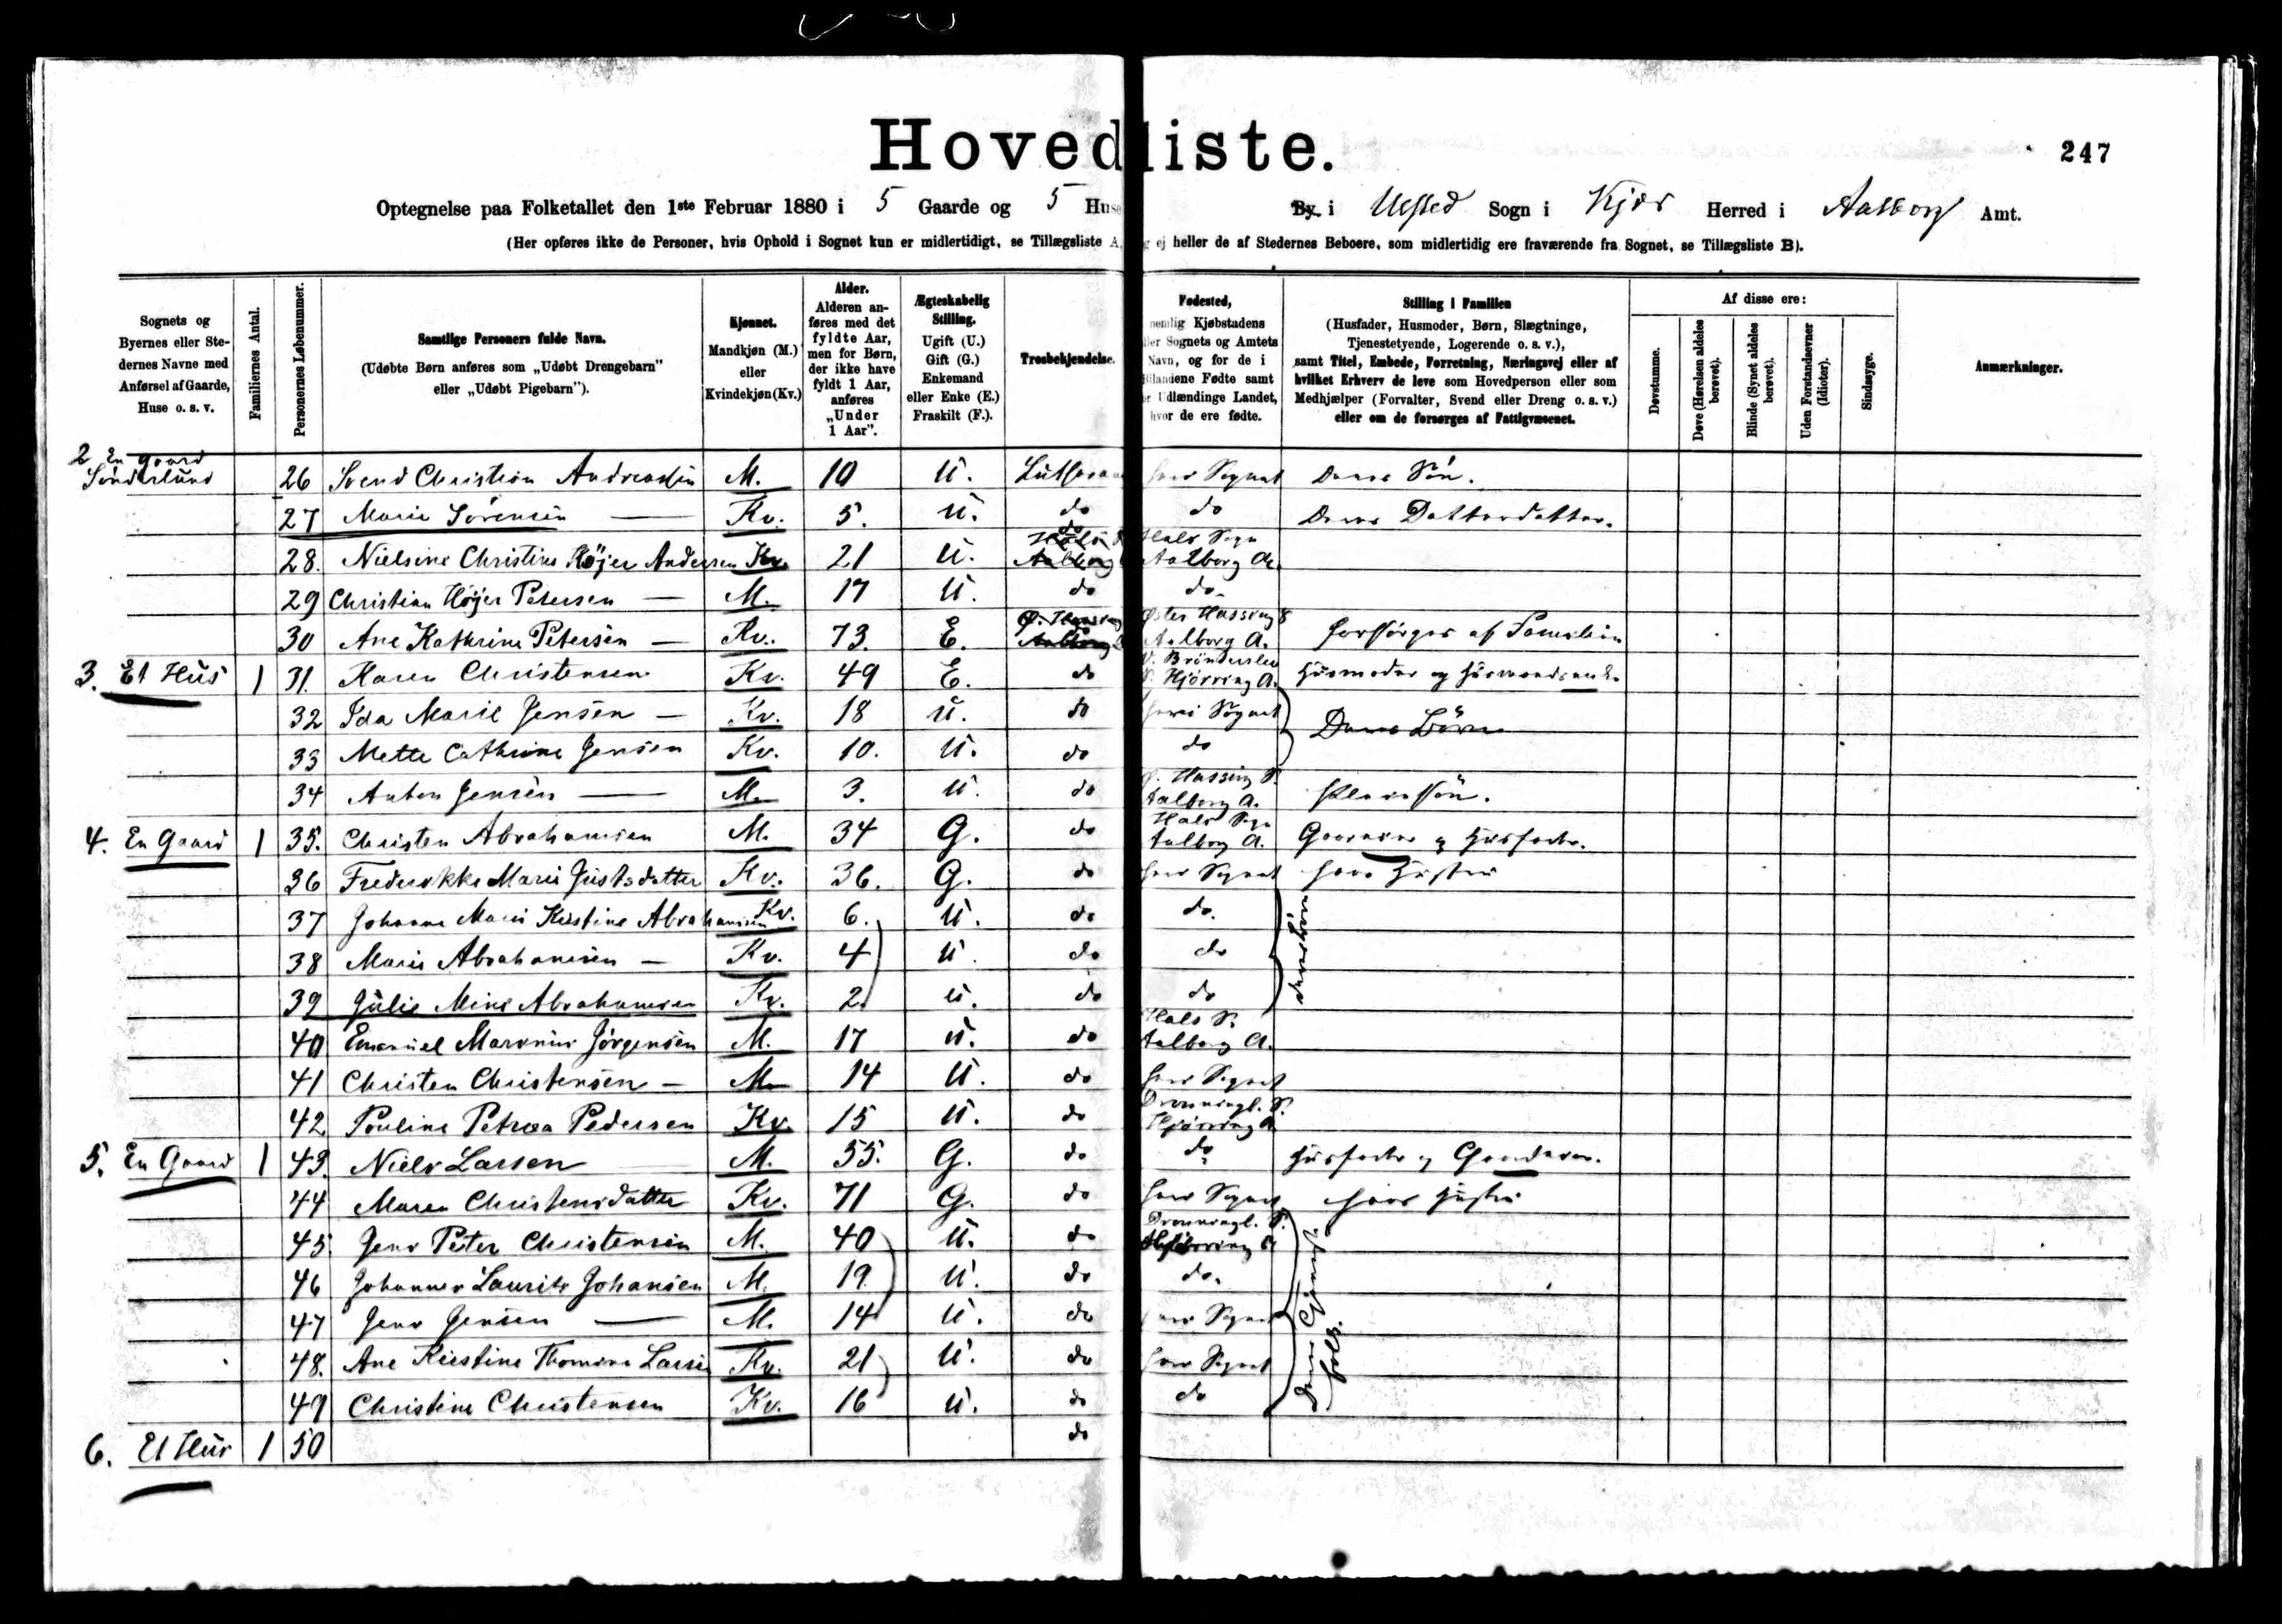 Hovedliste.
247
Optegnelse paa Folketallet den 1ste Februar 1880 i 5 Gaarde og 5 Huse By i Ulsted Sogn i Kjær Herred i Aalborg Amt.
(Her opføres ikke de Personer, hvis Ophold i Sognet kun er midlertidigt, se Tillægsliste A, og ej heller de af Stedernes Beboere, som midlertidig ere fraværende fra Sognet, se Tillægsliste B).
Sognets og Byernes eller Stedernes Navne med Anførsel af Gaarde, Huse o. s. v.
Familiernes Antal.
Personernes Løbenummer.
Samtlige Personers fulde Navn.
(Udøbte Børn anføres som „Udøbt Drengebarn" eller „Udøbt Pigebarn").
Kjønnet.
Mandkjøn (M.) eller Kvindekjøn (Kv.)
Alder.
Alderen anføres med det fyldte Aar, men for Børn, der ikke have fyldt 1 Aar, anføres „Under 1 Aar".
Ægteskabelig Stilling.
Ugift (U.) Gift (G.) Enkemand eller Enke (E.) Fraskilt (F.).
Trosbekjendelse.
Fødested,
nemlig Kjøbstadens eller Sognets og Amtets Navn, og for de i Bilandene Fødte samt for Udlændinge Landet, hvor de ere fødte.
Stilling i Familien
(Husfader, Husmoder, Børn, Slægtninge, Tjenestetyende, Logerende o. s. v.),
samt Titel, Embede, Forretning, Næringsvej eller af hvilket Erhverv de leve som Hovedperson eller som Medhjælper (Forvalter, Svend eller Dreng o. s. v.) eller om de forsørges af Fattigvæsenet.
Af disse ere:
Døvstumme.
Døve (Hørelsen aldeles berøvet).
Blinde (Synet aldeles berøvet).
Uden Forstandsevner (Idioter).
Sindssyge.
Anmærkninger.
2 En gaard
Sønderlund 26 Svend Christian Andreasen M. 10 U. Luthera her Sognet Deres Søn.
27 Marie Sørensen Kv. 5. U. do do Deres Datterdatter.
28. Nielsine Christine Höjer Andersen Kv. 21 U. do Hals Sogn Aalborg A.
29 Christian Höjer Petersen M. 17 U. do do.
30 Ane Kathrine Petersen Kv. 73. E. Øster Hassing S Aalborg A. forsørges af Familien
3. Et Hus 1 31. Karen Christensen Kv. 49 E. do V. Brönderslev S. Hjörring A. Husmoder og Husmandsenke
32 Ida Marie Jensen Kv. 18 U. do her i Sognet Deres Børn
33 Mette Cathrine Jensen Kv. 10. U. do do
34 Anton Jensen M. 3. U. do Hassing S. Aalborg A. Pleiesøn.
4. En Gaard 1 35. Christen Abrahamsen M. 34 G. do Hals Sogn Aalborg A. Gaardeier og Husfader.
36 Frederikke Marie Justsdatter Kv. 36. G. do her Sognet hans Hustru
37 Johanne Marie Kirstine Abrahamsen Kv. 6. U. do do.
38 Marie Abrahamsen Kv. 4 U. do do
deres børn
39 Julie Mine Abrahamsen Kv. 2. U. do do
40 Emanuel Marinus Jörgensen M. 17 U. do Hals S. Aalborg A.
41 Christen Christensen M. 14 U. do her Sognet
42 Pouline Petrea Pedersen Kv. 15 U. do Dronningl. S. Hjörring A
5. En Gaard 1 43. Niels Larsen M. 55. G. do do Husfader og Gaardeier.
44 Maren Christensdatter Kv. 71 G. do her Sognet hans Hustru
45 Jens Peter Christensen M. 40 U. do Dronningl. S. Hjörring A
46 Johannes Laurits Johansen M. 19 U. do do.
47 Jens Jensen M. 14 U. do her Sognet
Deres Tjeneste folk.
48. Ane Kirstine Thomine Larsen Kv. 21 U. do her Sognet
49 Christine Christensen Kv. 16 U. do do
6. Et Hus 1 50 do